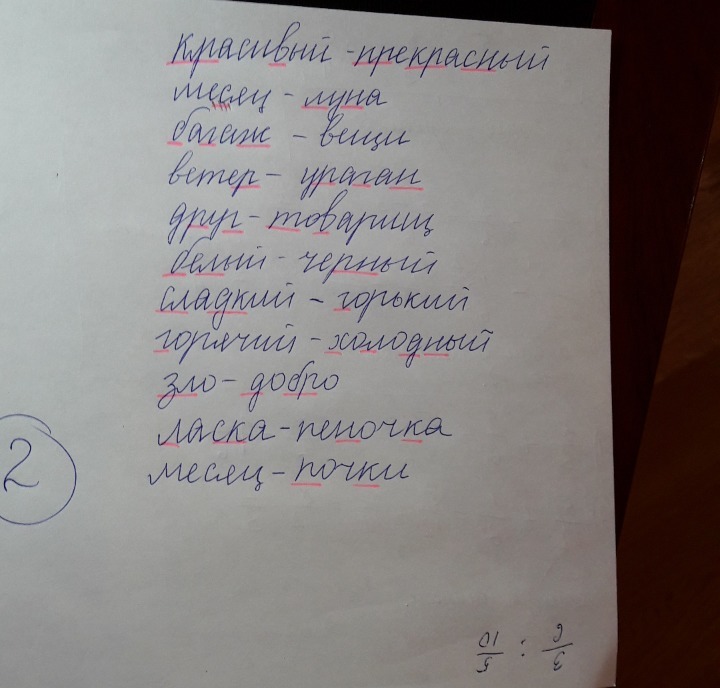 красивый - прекрасный
месяц - луна
багаж - вещи
ветер - ураган
друг - товарищ
белый - черный
сладкий - горький
горячий - холодный
зло - добро
ласка - пеночка
месяц - почки
2
3/6 : 5/10